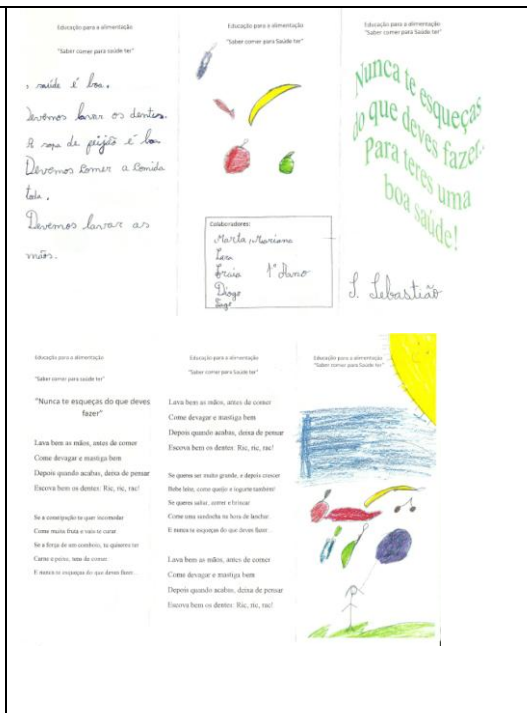 Educação para a alimentação
"Saber comer para saúde ter"
a saúde é boa.
Devemos lavar os dentes.
A sopa de feijão é boa
Devemos comer a comida
toda.
Devemos lavar as
mãos.
Educação para a alimentação
"Saber comer para Saúde ter"
Colaboradores:
Marta, Mariana
1º Ano
Diogo
Educação para a alimentação
"Saber comer para Saúde ter"
Nunca te esqueças
do que deves fazer.
Para teres uma
boa saúde!
S. Sebastião
Educação para a alimentação
"Saber comer para saúde ter"
"Nunca te esqueças do que deves
fazer"
Lava bem as mãos, antes de comer
Come devagar e mastiga bem
Depois quando acabas, deixa de pensar
Escova bem os dentes: Ric, ric, rac!
Se a constipação te quer incomodar
Come muita fruta e vais te curar
Se a força de um comboio, tu quiseres ter
Carne e peixe, tens de comer.
E nunca te esqueças do que deves fazer...
Educação para a alimentação
"Saber comer para Saúde ter"
Lava bem as mãos, antes de comer
Come devagar e mastiga bem
Depois quando acabas, deixa de pensar
Escova bem os dentes: Ric, ric, rac!
Se queres ser muito grande, e depois crescer
Bebe leite, come queijo e iogurte também!
Se queres saltar, correr e brincar
Come uma sandocha na hora de lanchar
E nunca te esqueças do que deves fazer...
Lava bem as mãos, antes de comer
Come devagar e mastiga bem
Depois quando acabas, deixa de pensar
Escova bem os dentes: Ric, ric, rac!
Educação para a alimentação
"Saber comer para Saúde ter"